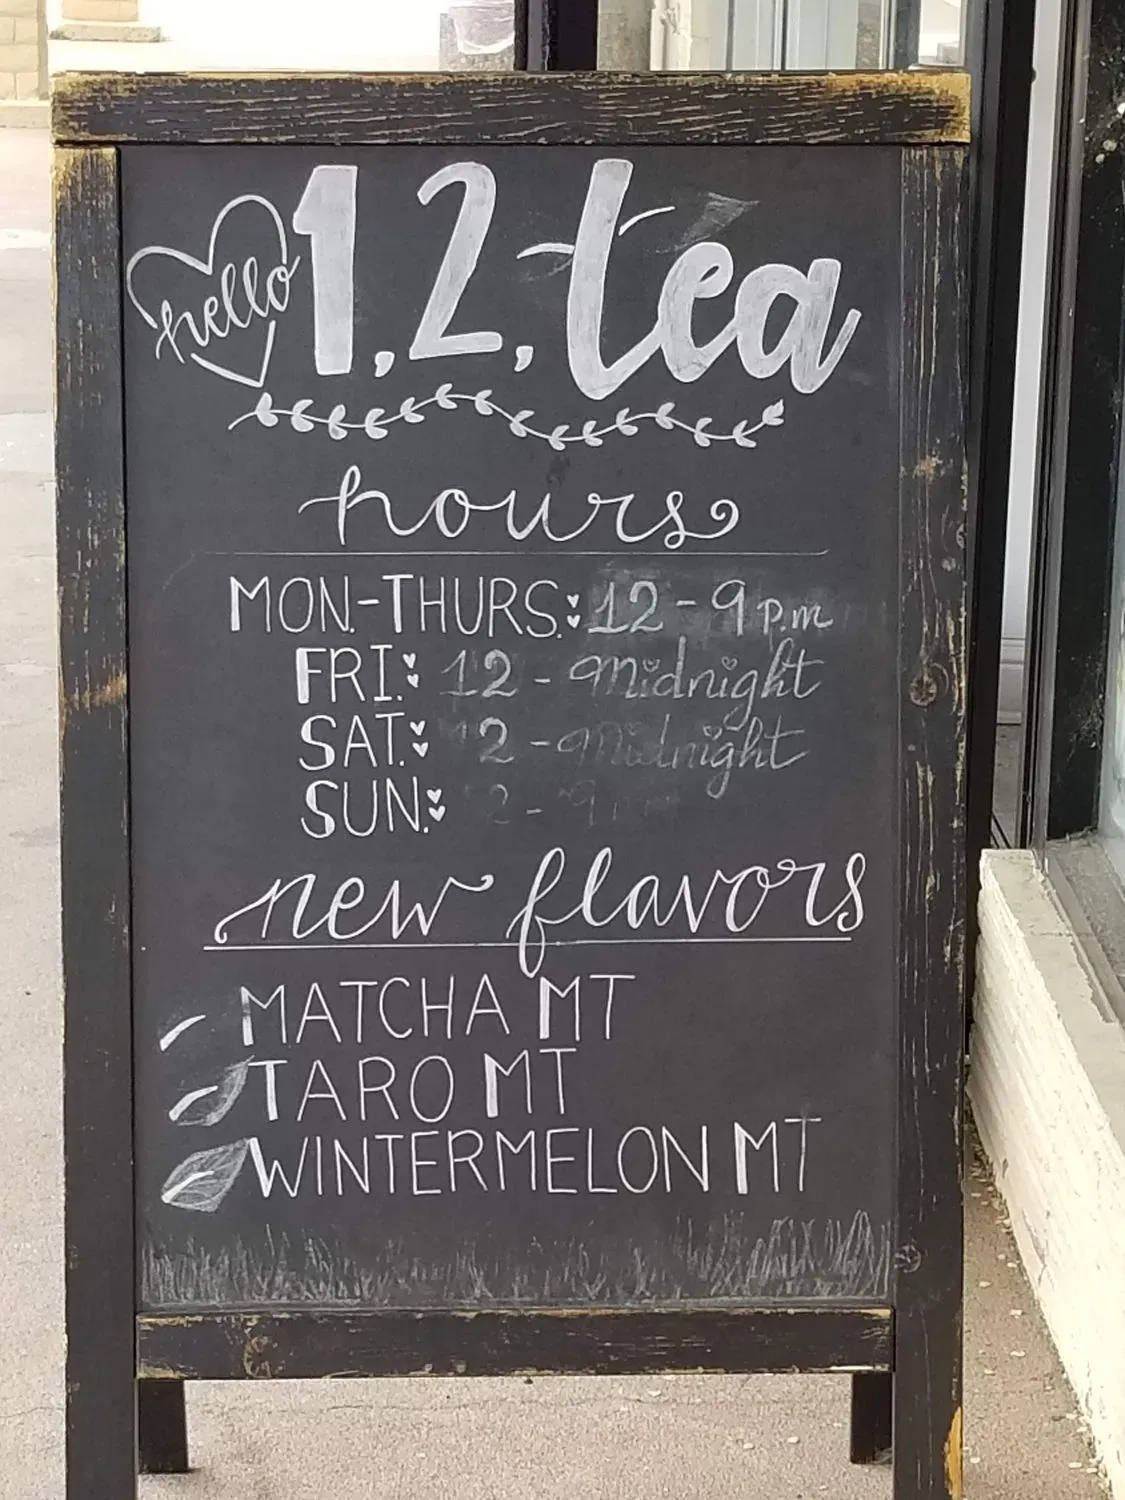 hello 1,2,tea
hours
MON.-THURS.: 12-9 p.m
FRI.: 12-Midnight
SAT.: 12-Midnight
SUN.: 12-9
new flavors
MATCHA MT
TARO MT
WINTERMELON MT